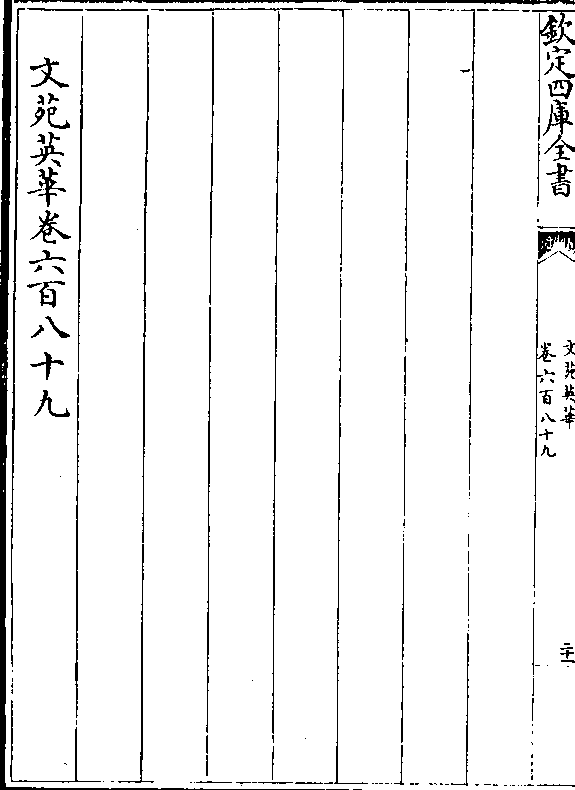 欽定四庫全書
文苑英華
卷六百八十九
二十一
文苑英華卷六百八十九